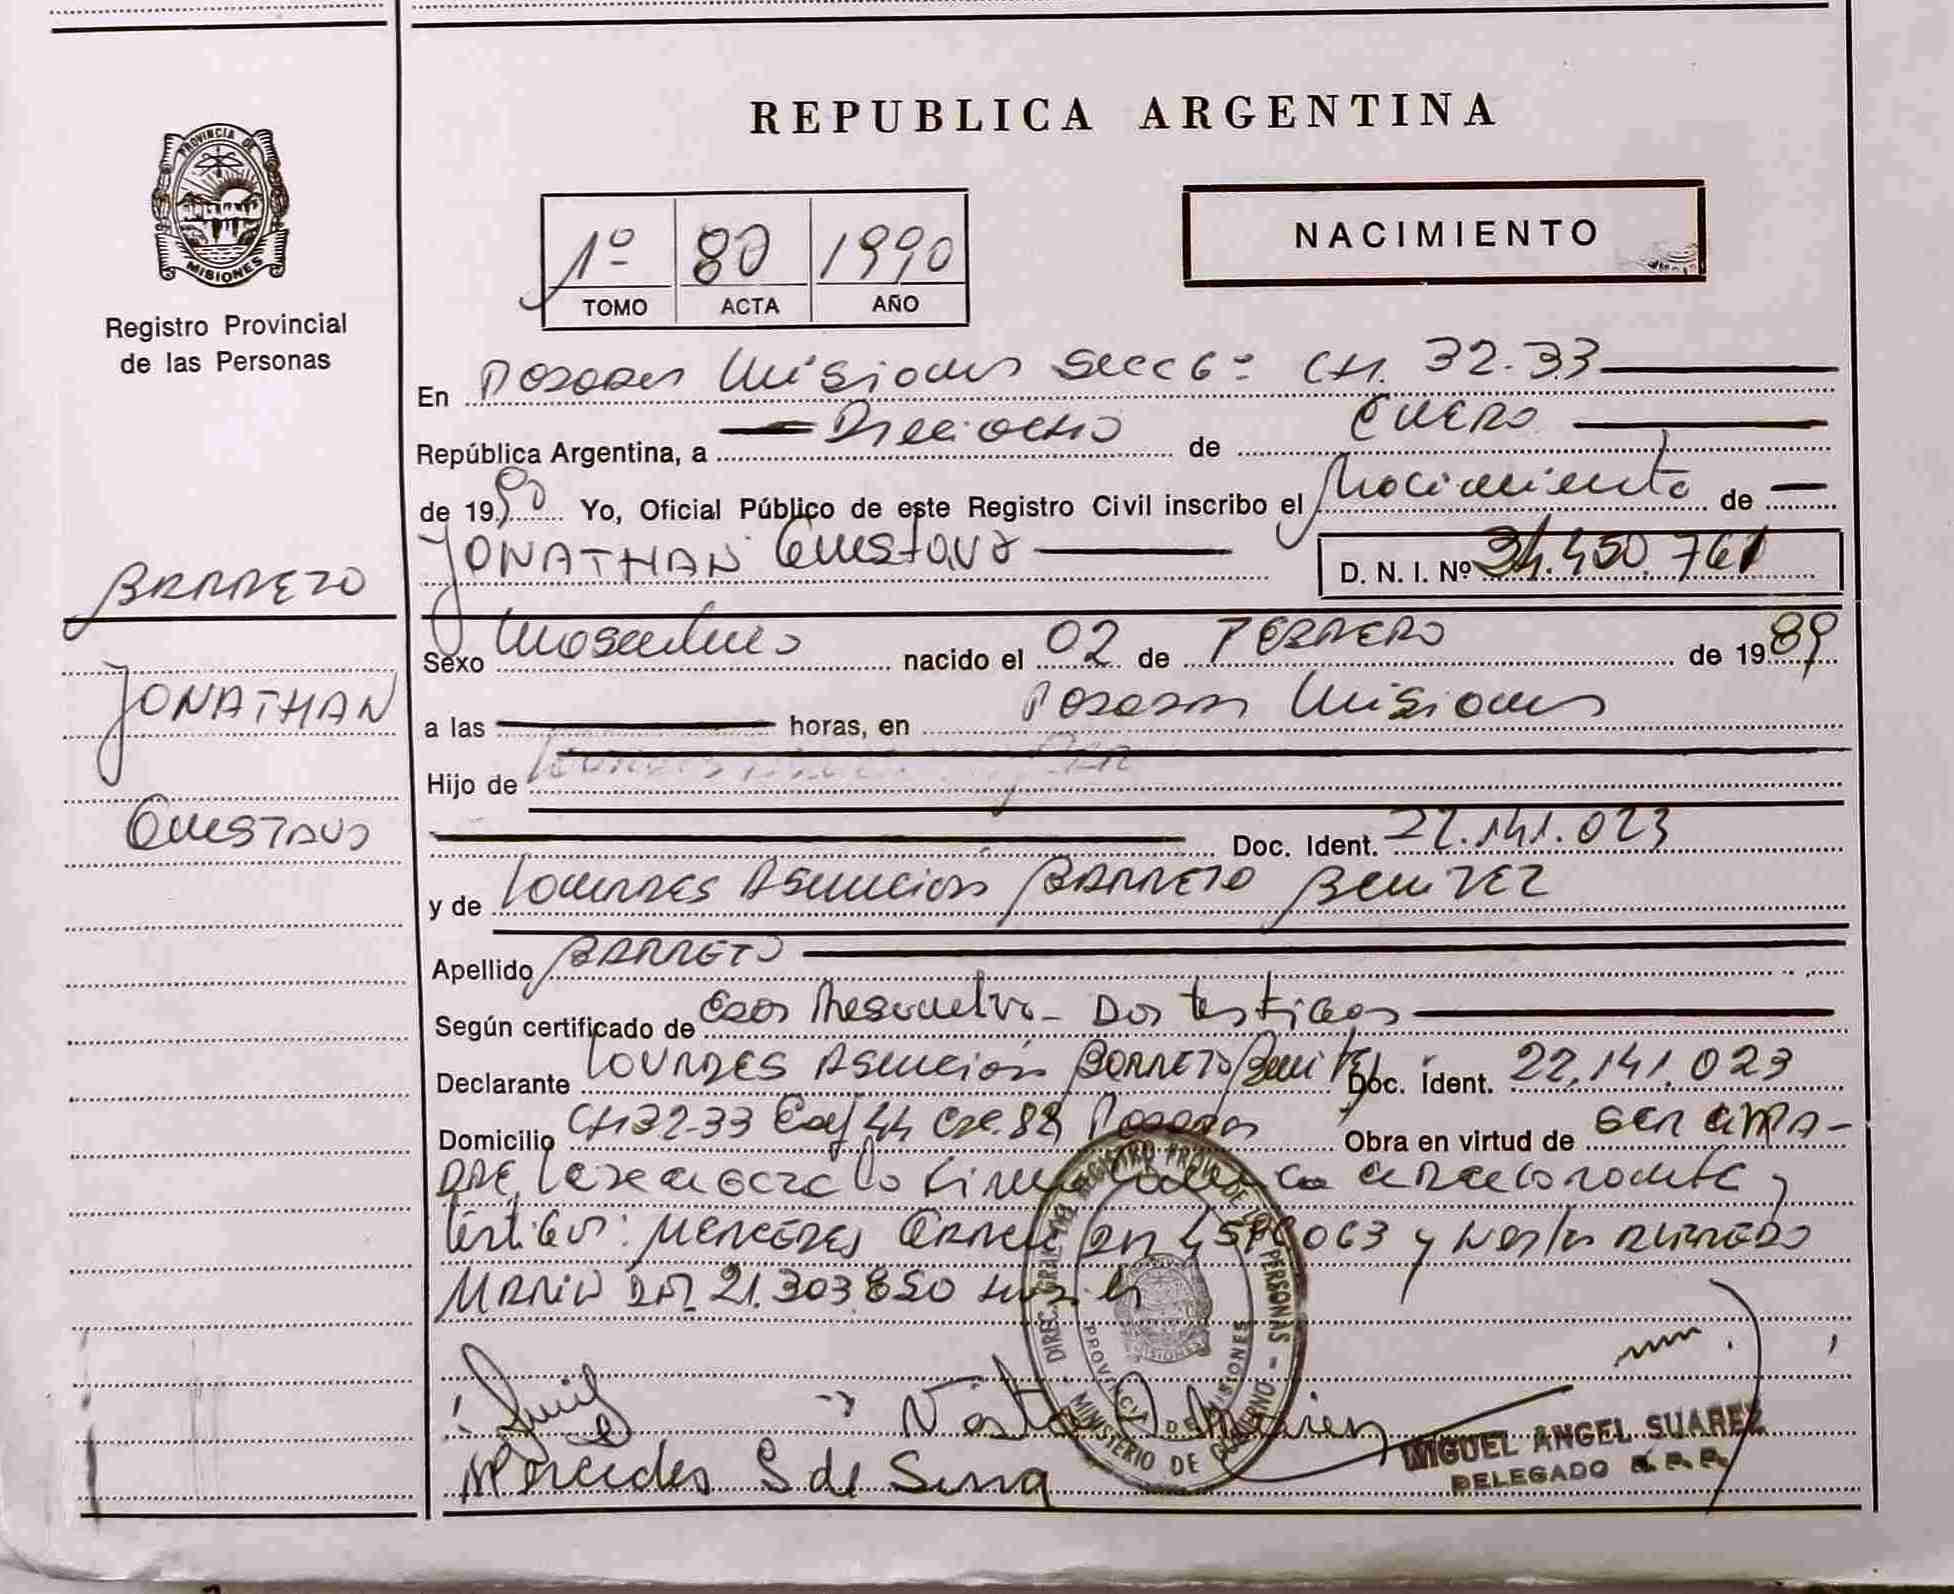 REPUBLICA ARGENTINA
PROVINCIA DE
MISIONES
Registro Provincial
de las Personas
1º 80 1990
TOMO ACTA AÑO
NACIMIENTO
En Posadas Misiones Secc 6º CH. 32-33
República Argentina, a Dieciocho de ENERO
de 1990 Yo, Oficial Público de este Registro Civil inscribo el Nacimiento de
JONATHAN Gustavo D. N. I. Nº 34.450.761
BARRETO
JONATHAN
GUSTAVO
Sexo Masculino nacido el 02 de FEBRERO de 1989
a las horas, en Posadas Misiones
Hijo de
Doc. Ident. 22.141.023
y de LOURDES ASUNCION BARRETO BENITEZ
Apellido BARRETO
Según certificado de Dos testigos
Declarante LOURDES ASUNCIÓN BARRETO Benitez Doc. Ident. 22.141.023
Domicilio CH 32-33 44 88 Posadas Obra en virtud de SER LA MA-
DRE
testigos: MERCEDES 063 y Nestor ALFREDO
21.303.850
DIREC. GRAL. DEL REGISTRO PROV. DE LAS PERSONAS - MINISTERIO DE GOBIERNO -
PROVINCIA DE MISIONES
Mercedes S de Serra
MIGUEL ANGEL SUAREZ
DELEGADO R.P.P.